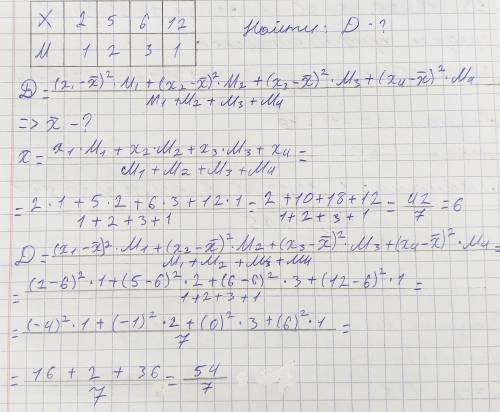 X 2 5 6 12
M 1 2 3 1
Найти: D - ?
D = (x₁ - x̄)² · M₁ + (x₂ - x̄)² · M₂ + (x₃ - x̄)² · M₃ + (x₄ - x̄)² · M₄
M₁ + M₂ + M₃ + M₄
=> x̄ - ?
x̄ = x₁ · M₁ + x₂ · M₂ + x₃ · M₃ + x₄ =
M₁ + M₂ + M₃ + M₄
= 2 · 1 + 5 · 2 + 6 · 3 + 12 · 1 = 2 + 10 + 18 + 12 = 42 = 6
1 + 2 + 3 + 1 1 + 2 + 3 + 1 7
D = (x₁ - x̄)² · M₁ + (x₂ - x̄)² · M₂ + (x₃ - x̄)² · M₃ + (x₄ - x̄)² · M₄ =
M₁ + M₂ + M₃ + M₄
= (2 - 6)² · 1 + (5 - 6)² · 2 + (6 - 6)² · 3 + (12 - 6)² · 1 =
1 + 2 + 3 + 1
= (-4)² · 1 + (-1)² · 2 + (0)² · 3 + (6)² · 1 =
7
= 16 + 2 + 36 = 54
7 7